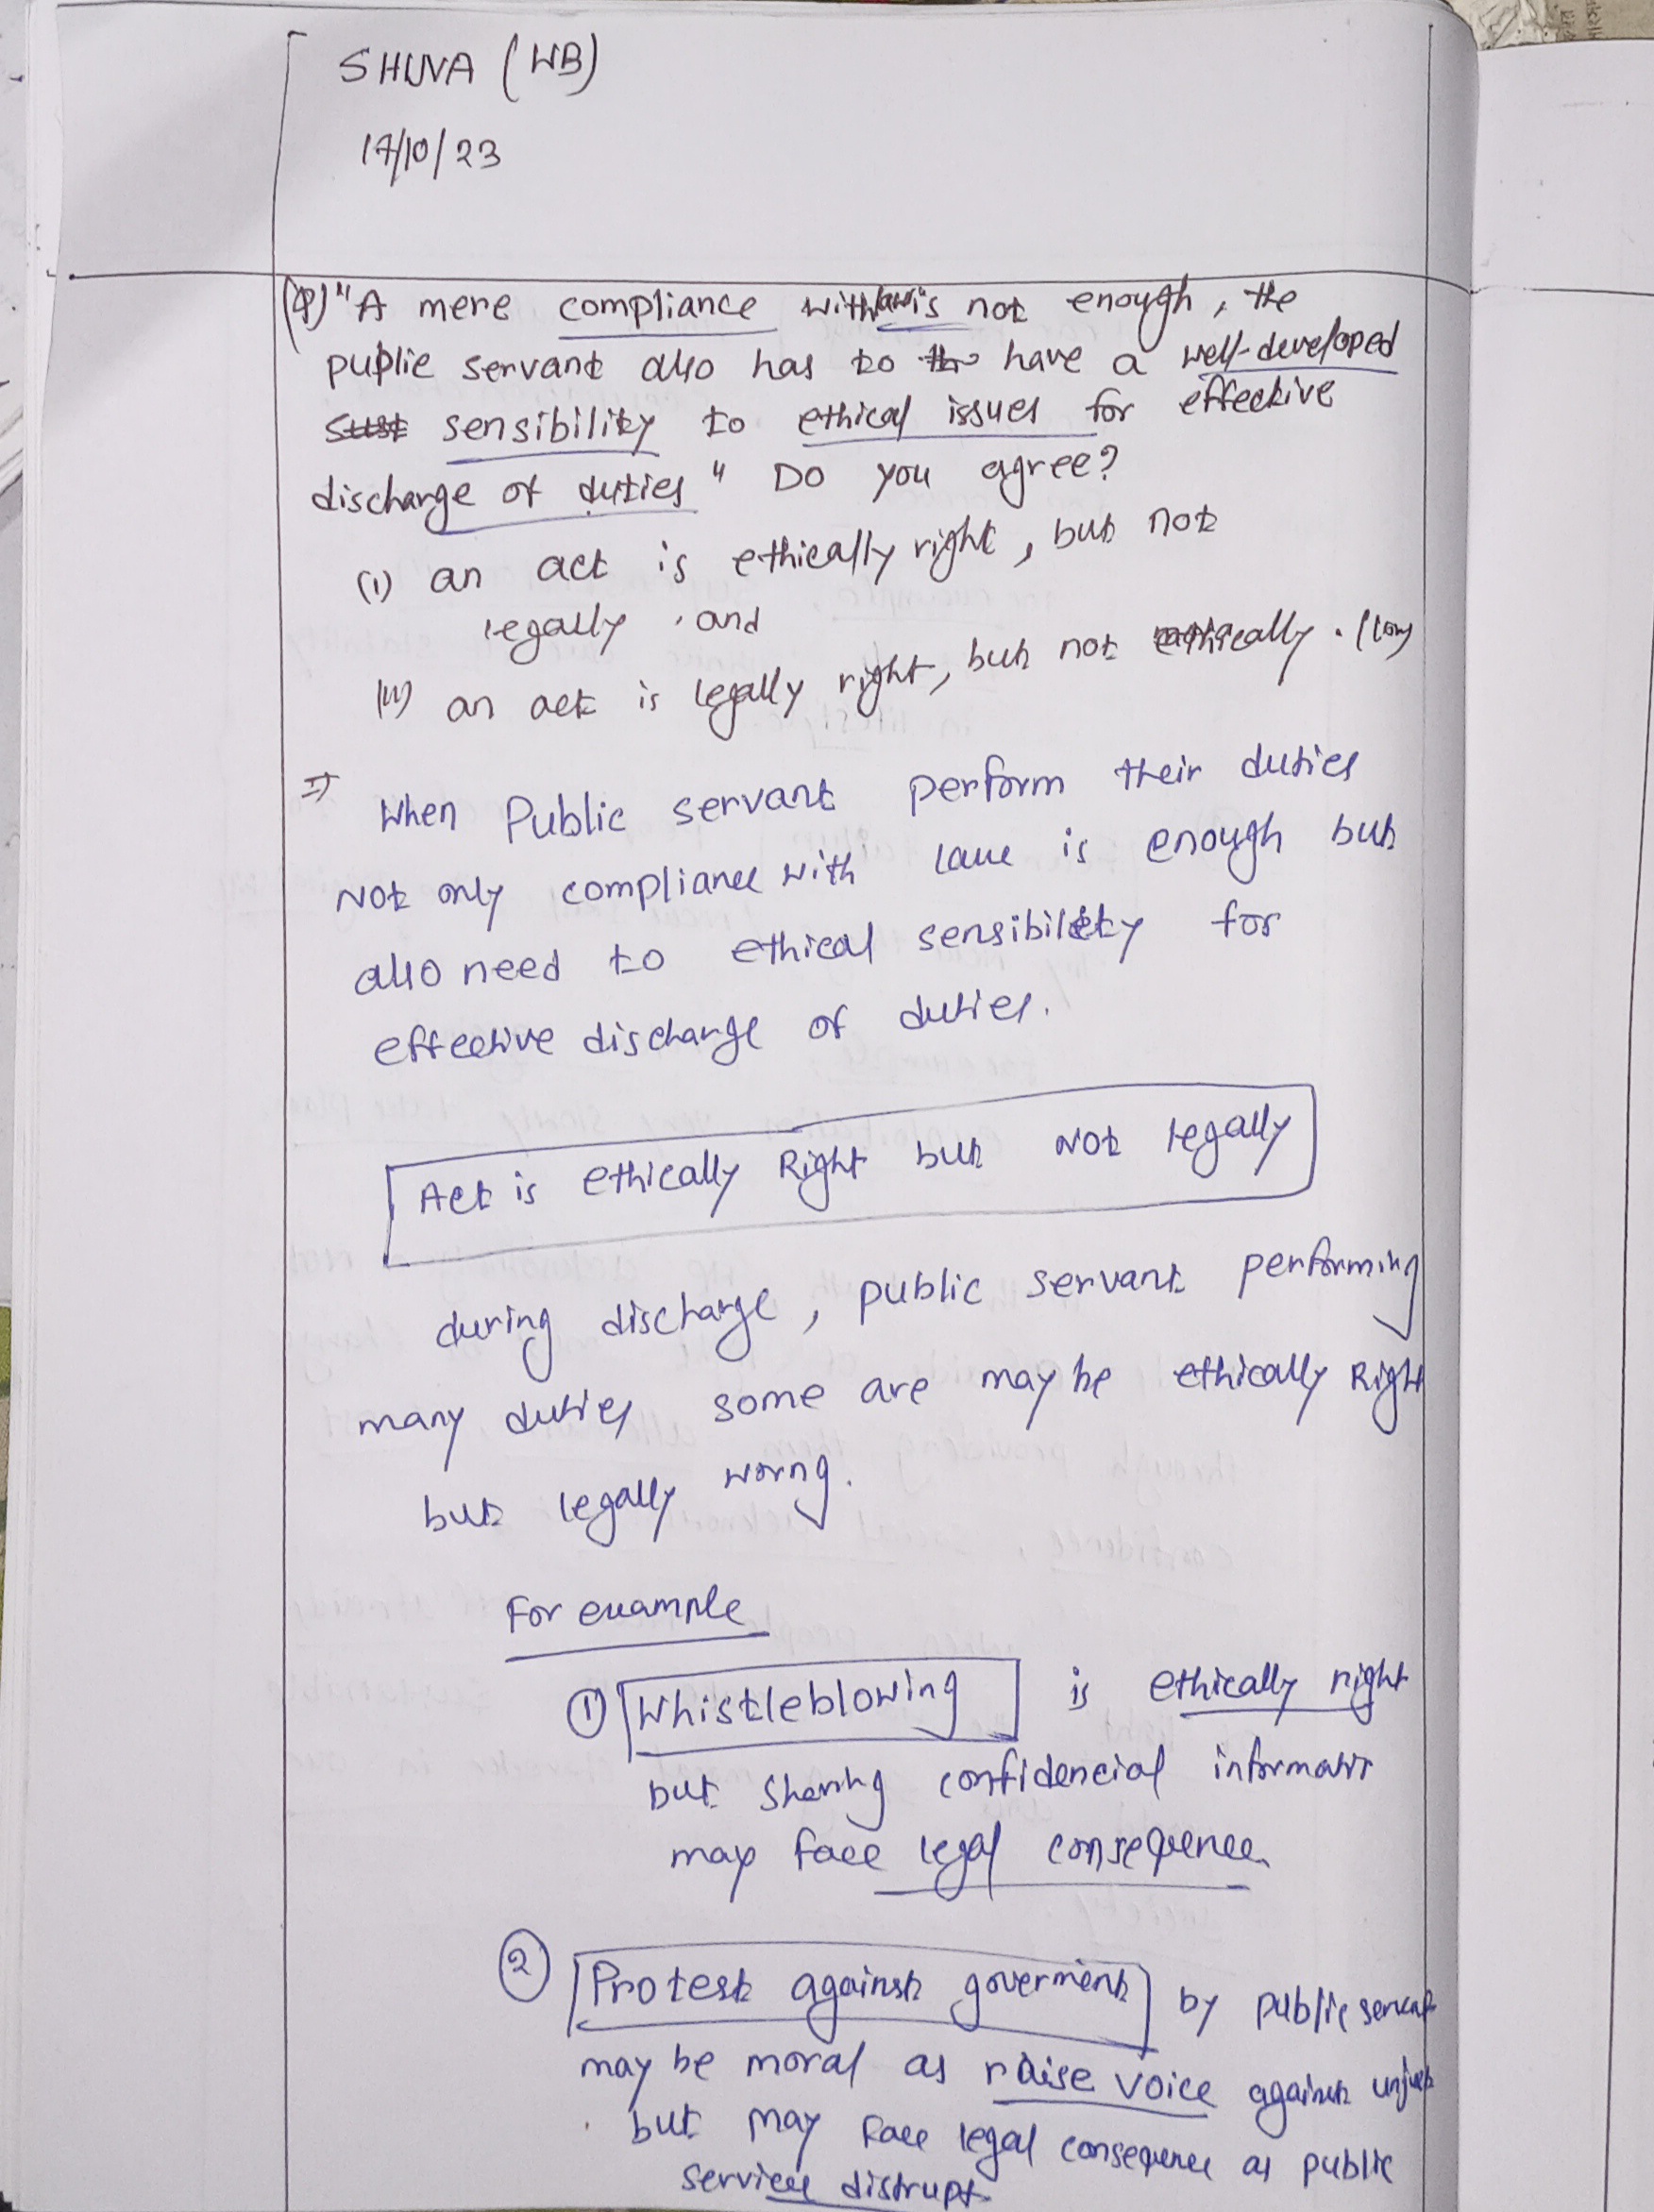 SHUVA (WB)
17/10/23
(Q) "A mere compliance with law is not enough, the
public servant also has to have a well-developed
sensibility to ethical issues for effective
discharge of duties" Do you agree?
(i) an act is ethically right, but not
legally, and
(ii) an act is legally right, but not ethically. (10m)
⇒ When Public servant perform their duties
Not only compliance with law is enough but
also need to ethical sensibility for
effective discharge of duties.
Act is ethically Right but Not legally
during discharge, public servant performing
many duties some are may be ethically Right
but legally worng.
For example
① Whistleblowing is ethically right
but sharing confidencial
may face legal consequence
② Protest against goverment by public servant
may be moral as raise voice against
but may face legal consequence as public
services distrupt